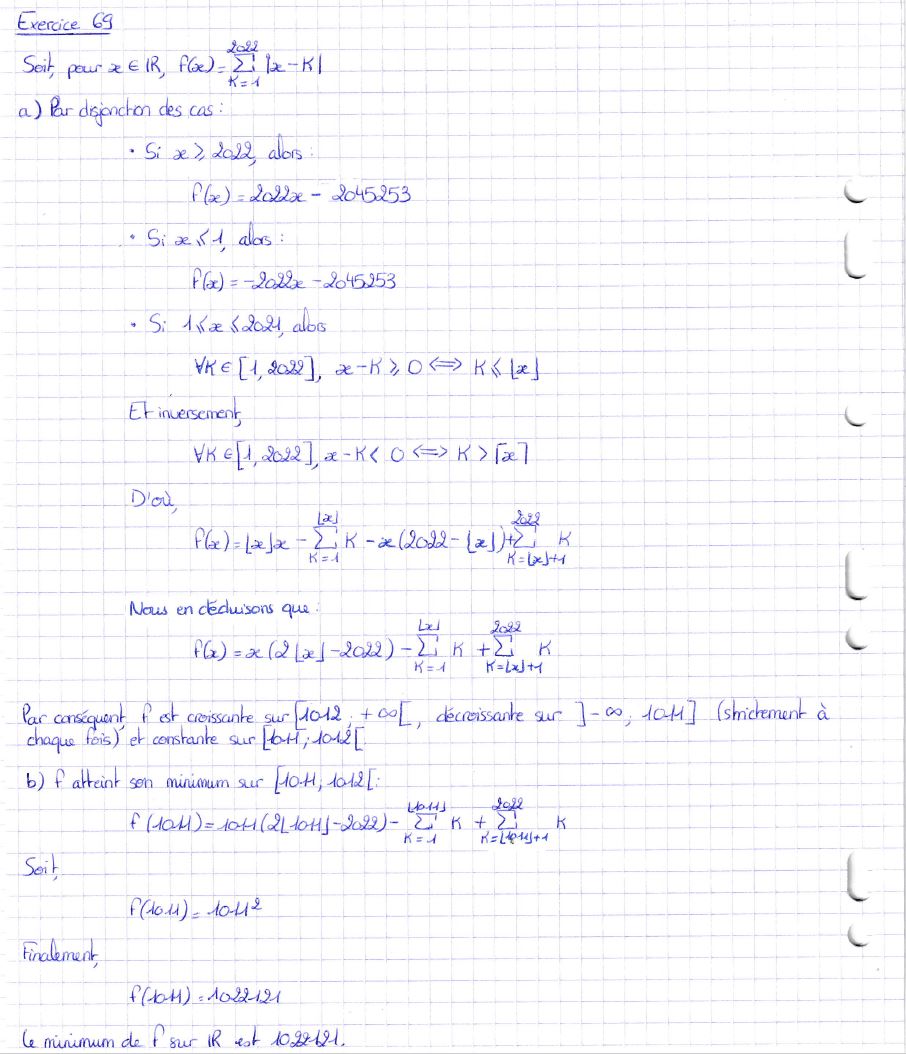 Exercice 69
Soit, pour x ∈ ℝ, f(x) = ∑_{K=1}^{2022} |x - K|
a) Par disjonction des cas :
• Si x ⩾ 2022, alors :
f(x) = 2022x - 2045253
• Si x ⩽ 1, alors :
f(x) = -2022x - 2045253
• Si 1 ⩽ x ⩽ 2021, alors
∀K ∈ [1, 2022], x - K ⩾ 0 ⟺ K ⩽ ⌊x⌋
Et inversement,
∀K ∈ [1, 2022], x - K < 0 ⟺ K > ⌈x⌉
D'où,
f(x) = ⌊x⌋x - ∑_{K=1}^{⌊x⌋} K - x(2022 - ⌊x⌋) + ∑_{K=⌊x⌋+1}^{2022} K
Nous en déduisons que :
f(x) = x(2⌊x⌋ - 2022) - ∑_{K=1}^{⌊x⌋} K + ∑_{K=⌊x⌋+1}^{2022} K
Par conséquent, f est croissante sur [1012 ; +∞[, décroissante sur ]-∞ ; 1011] (strictement à
chaque fois) et constante sur [1011 ; 1012[.
b) f atteint son minimum sur [1011 ; 1012[ :
f(1011) = 1011(2⌊1011⌋ - 2022) - ∑_{K=1}^{⌊1011⌋} K + ∑_{K=⌊1011⌋+1}^{2022} K
Soit,
f(1011) = 1011²
Finalement,
f(1011) = 1022121
Le minimum de f sur ℝ est 1022121.